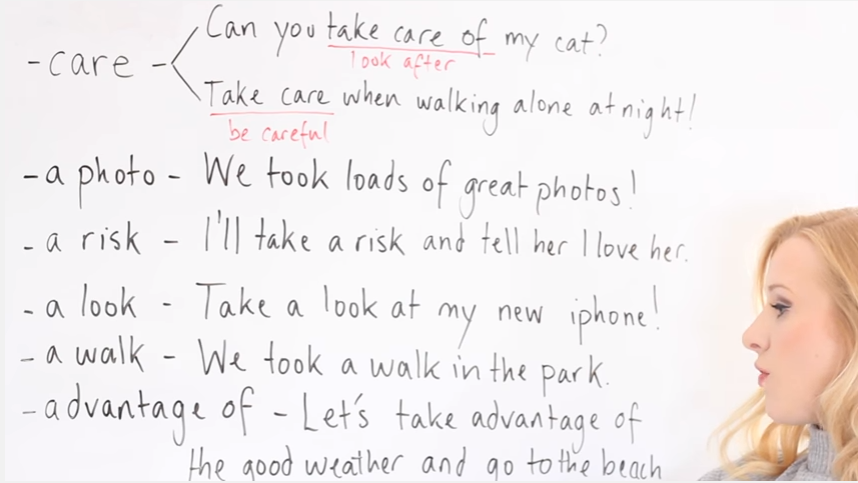 Can you take care of my cat?
look after
- care -
Take care when walking alone at night!
be careful
- a photo - We took loads of great photos!
- a risk - I'll take a risk and tell her I love her.
- a look - Take a look at my new iphone!
- a walk - We took a walk in the park.
- advantage of - Let's take advantage of
the good weather and go to the beach